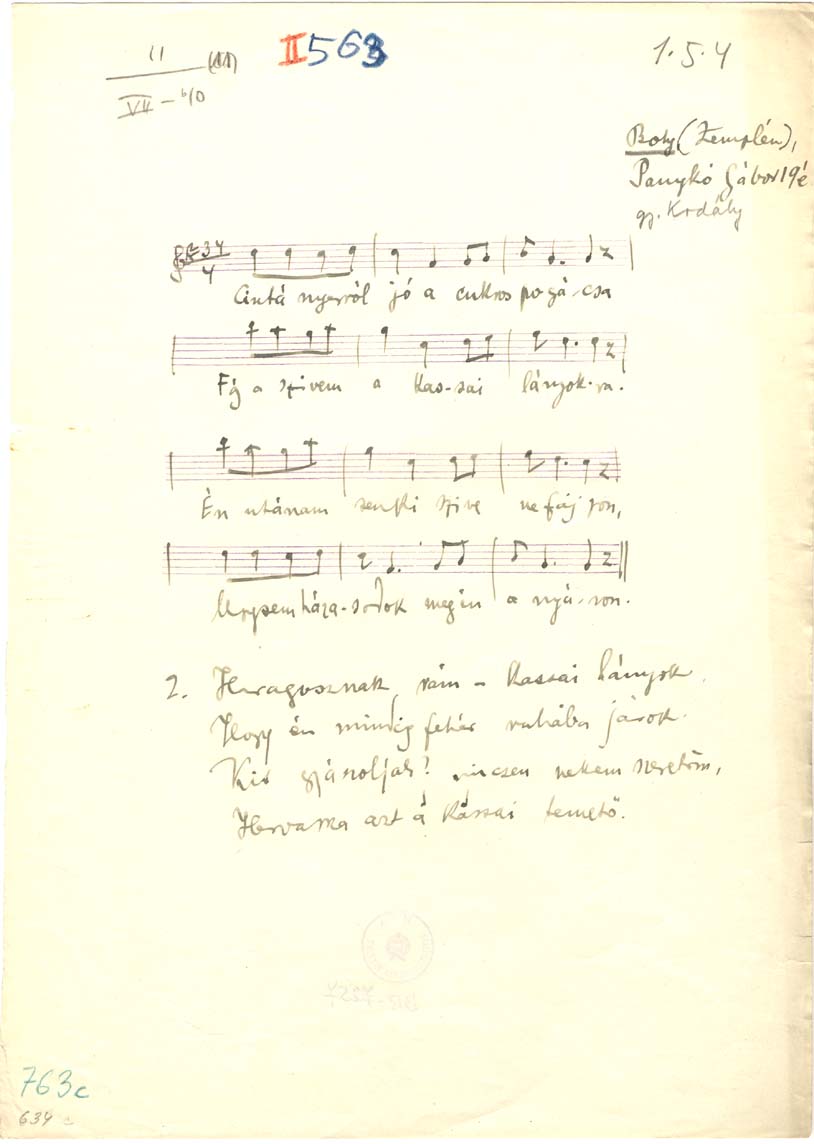 II 563
1.5.4
VII - b10
Boly (Zemplén),
Panykó Gábor 19é
gy. Kodály
34
4
Cintá nyerról jó a cukros pogá-csa
Fáj a szivem a kas-sai lányok-ra.
Én utánam senki szive ne fáj jon,
Ugysem háza-sodok megén a nyá-ron.
2. Haragusznak rám - kassai lányok
Hogy én mindig fehér ruhába járok.
Kit gyászoljak? nincsen nekem szeretöm,
Hervassa azt a kassai temető.
763c
634